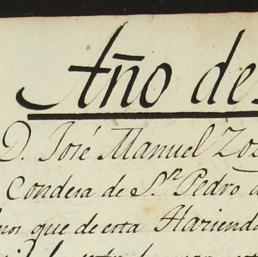 Año de
D. José Manuel Zo
Condesa de S.ⁿ Pedro
que de esta Hacienda